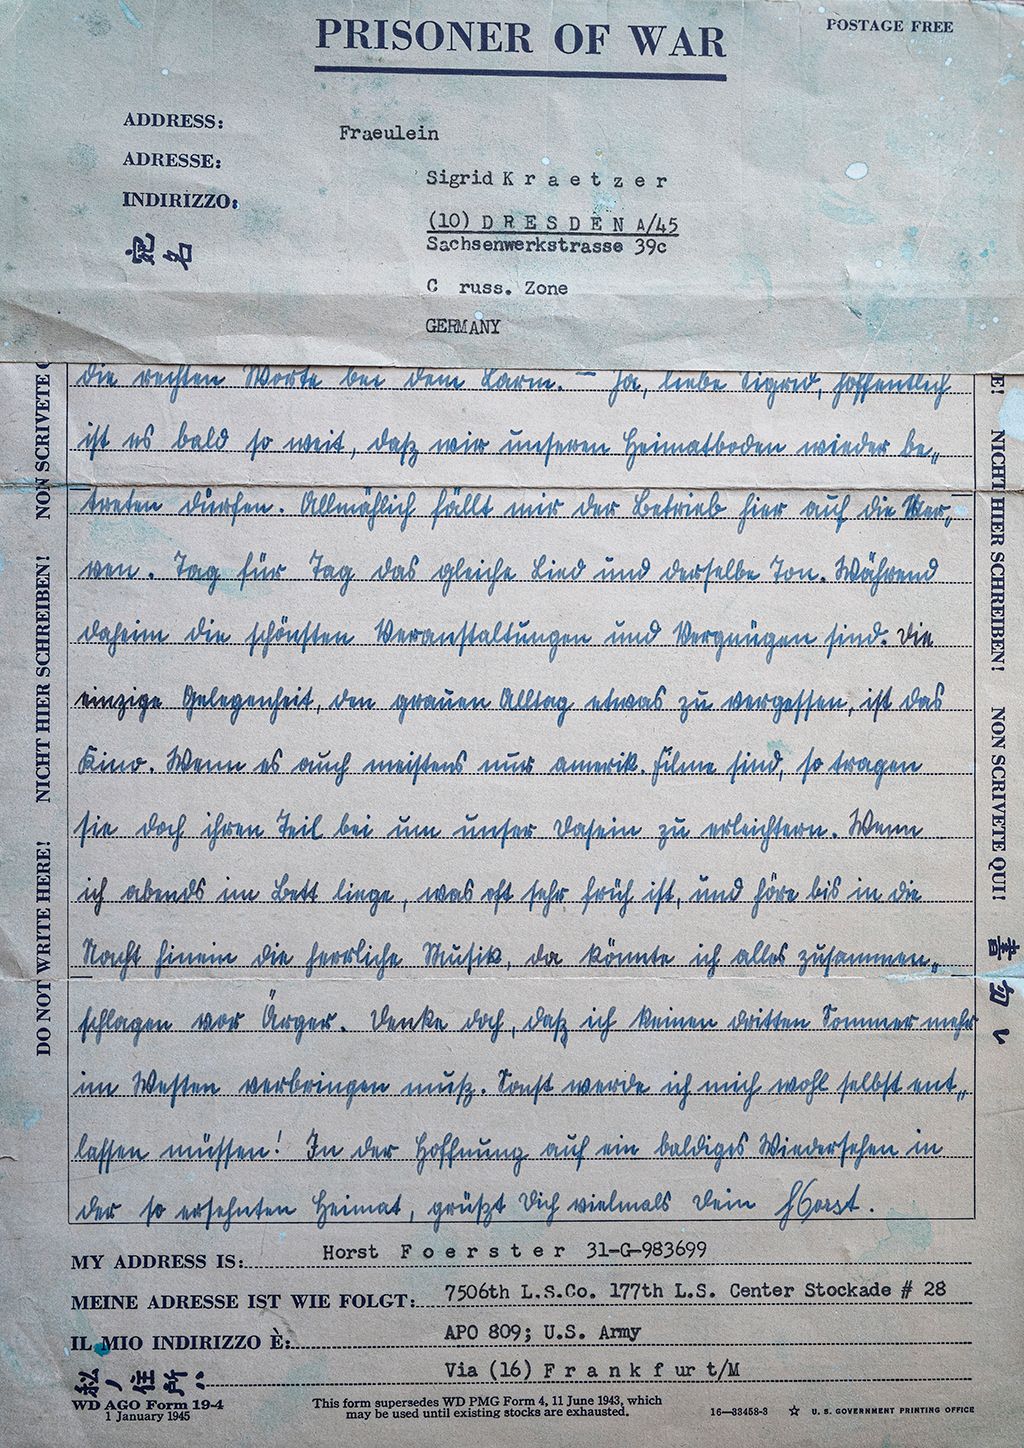 PRISONER OF WAR
POSTAGE FREE
ADDRESS:
ADRESSE:
INDIRIZZO:
宛名
Fraeulein
Sigrid K r a e t z e r
(10) D R E S D E N A/45
Sachsenwerkstrasse 39c
C russ. Zone
GERMANY
die rechten Worte bei dem Lärm. – Ja, liebe Sigrid, hoffentlich
ist es bald so weit, daß wir unseren Heimatboden wieder be„
treten dürfen. Allmählich fällt mir der Betrieb hier auf die Ner„
ven. Tag für Tag das gleiche Lied und derselbe Ton. Während
daheim die schönsten Veranstaltungen und Vergnügen sind. Die
einzige Gelegenheit, den grauen Alltag etwas zu vergessen, ist das
Kino. Wenn es auch meistens nur amerik. Filme sind, so tragen
sie doch ihren Teil bei um unser Dasein zu erleichtern. Wenn
ich abends im Bett liege, was oft sehr früh ist, und höre bis in die
Nacht hinein die herrliche Musik, da könnte ich alles zusammen„
schlagen vor Ärger. Denke doch, daß ich keinen dritten Sommer mehr
im Westen verbringen muß. Sonst werde ich mich wohl selbst ent„
lassen müssen! In der Hoffnung auf ein baldiges Wiedersehen in
der so ersehnten Heimat, grüßt Dich vielmals Dein Horst.
DO NOT WRITE HERE! NICHT HIER SCHREIBEN! NON SCRIVETE
NICHT HIER SCHREIBEN! NON SCRIVETE QUI!
MY ADDRESS IS: Horst F o e r s t e r 31-G-983699
MEINE ADRESSE IST WIE FOLGT: 7506th L.S.Co. 177th L.S. Center Stockade # 28
IL MIO INDIRIZZO È: APO 809; U.S. Army
Via (16) F r a n k f u r t/M
WD AGO Form 19-4
1 January 1945
This form supersedes WD PMG Form 4, 11 June 1943, which
may be used until existing stocks are exhausted.
16—33458-3 ☆ U. S. GOVERNMENT PRINTING OFFICE